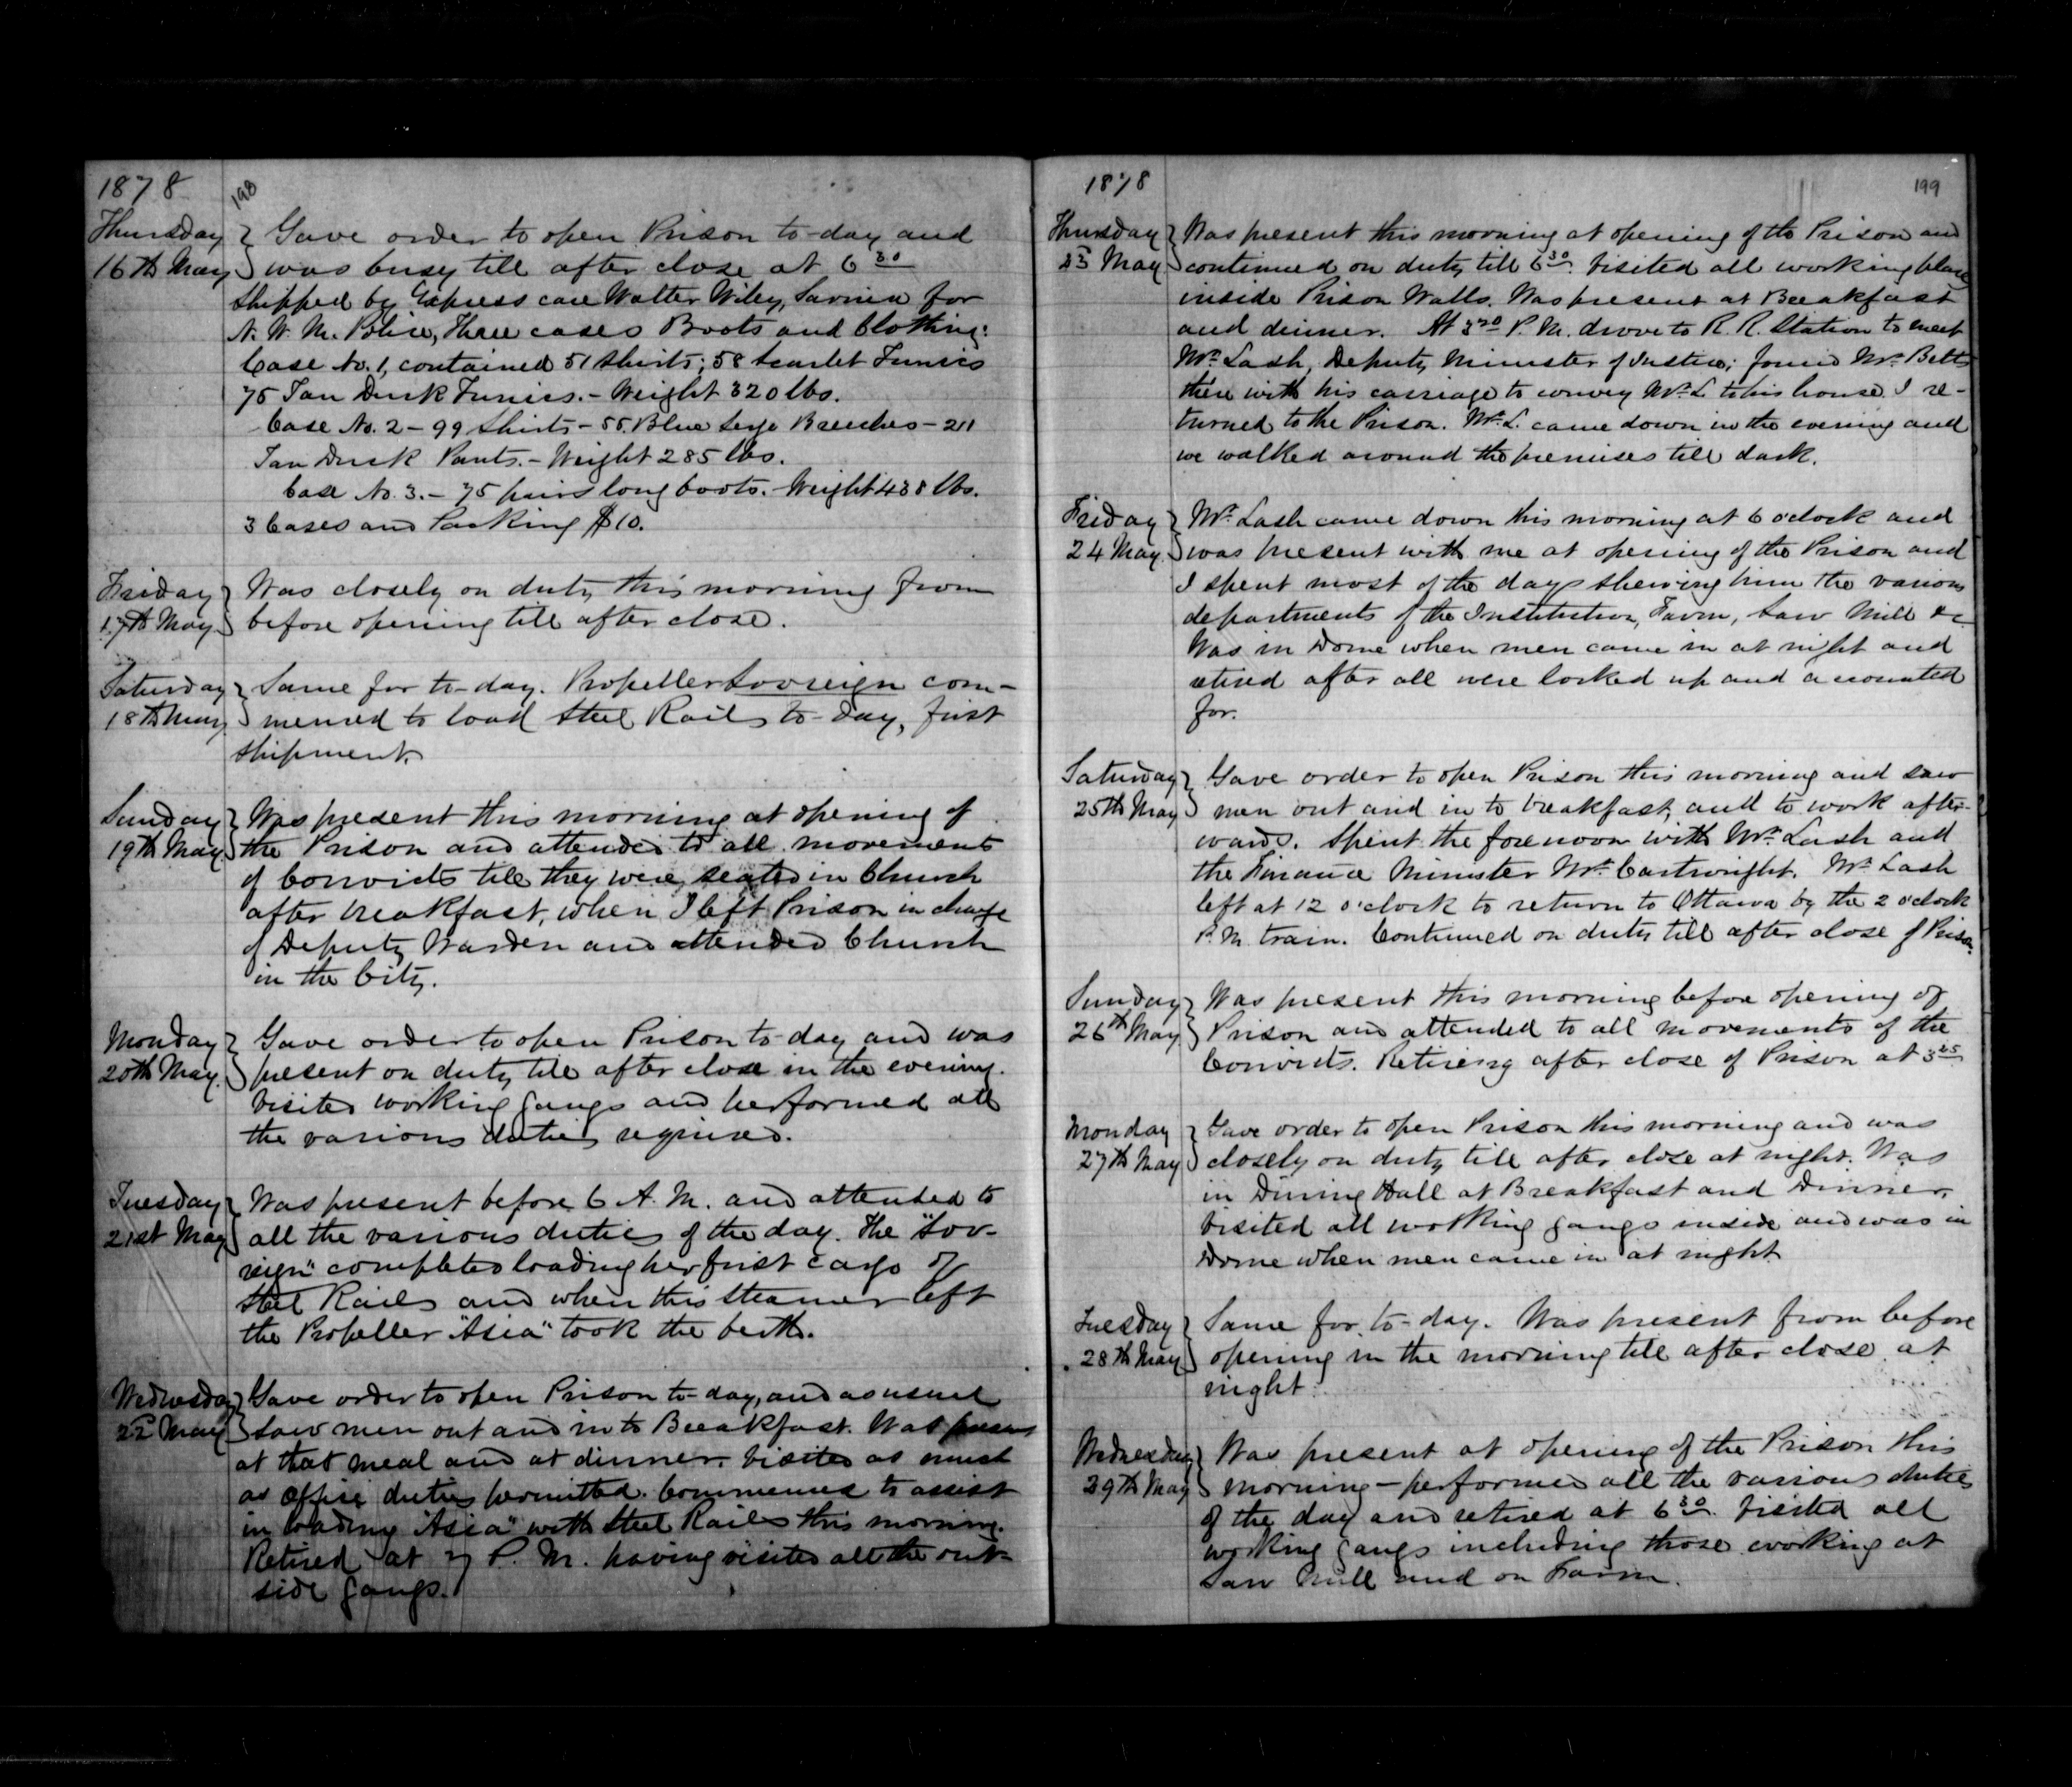 1878 198
Thursday } Gave order to open Prison to-day and
16th May } was busy till after close at 6 30
Shipped by Express care Walter Wiley, Sarnia for
N. W. M. Police, Three cases Boots and Clothing:
Case No. 1, contained 51 Shirts; 58 Scarlet Tunics
75 Tan Duck Tunics. - Weight 320 lbs.
Case No. 2 - 99 Shirts - 55 Blue Serge Breeches - 211
Tan Duck Pants. - Weight 285 lbs.
Case No. 3. - 75 pairs long boots. Weight 438 lbs.
3 Cases and Packing $10.
Friday } Was closely on duty this morning from
17th May } before opening till after close.
Saturday } Same for to-day. Propeller Sovreign com-
18th May } menced to load Steel Rails to-day, first
shipment.
Sunday } Was present this morning at opening of
19th May } the Prison and attended to all movements
of Convicts till they were seated in Church
after breakfast, when I left Prison in charge
of Deputy Warden and attended Church
in the City.
Monday } Gave order to open Prison to-day and was
20th May } present on duty till after close in the evening.
Visited working gangs and performed all
the various duties required.
Tuesday } Was present before 6 A. M. and attended to
21st May } all the various duties of the day. The "Sov-
reign" completed loading her first cargo of
Steel Rails and when this Steamer left
the Propeller "Asia" took the berth.
Wednesday } Gave order to open Prison to-day, and as usual
22d May } saw men out and in to Breakfast. Was present
at that meal and at dinner. Visited as much
as Office duties permitted. Commenced to assist
in loading "Asia" with Steel Rails this morning.
Retired at 7 P. M. having visited all the out-
side gangs.
1878 199
Thursday } Was present this morning at opening of the Prison and
23 May } continued on duty till 6 30. Visited all working places
inside Prison Walls. Was present at Breakfast
and dinner. At 3 20 P. M. drove to R. R. Station to meet
Mr. Lash, Deputy Minister of Justice; found Mr. Betts
there with his carriage to convey Mr. L. to his house. I re-
turned to the Prison. Mr. L. came down in the evening and
we walked around the premises till dark.
Friday } Mr. Lash came down this morning at 6 o'clock and
24 May } was present with me at opening of the Prison and
I spent most of the day shewing him the various
departments of the Institution, Farm, Saw Mill &c
Was in Dome when men came in at night and
retired after all were locked up and accounted
for.
Saturday } Gave order to open Prison this morning and saw
25th May } men out and in to breakfast, and to work after-
wards. Spent the forenoon with Mr. Lash and
the Finance Minister Mr. Cartwright. Mr. Lash
left at 12 o'clock to return to Ottawa by the 2 o'clock
P. M. train. Continued on duty till after close of Prison.
Sunday } Was present this morning before opening of
26th May } Prison and attended to all movements of the
Convicts. Retiring after close of Prison at 3 25
Monday } Gave order to open Prison this morning and was
27th May } closely on duty till after close at night. Was
in Dining Hall at Breakfast and Dinner.
Visited all working gangs inside and was in
Dome when men came in at night.
Tuesday } Same for to-day. Was present from before
28th May } opening in the morning till after close at
night.
Wednesday } Was present at opening of the Prison this
29th May } morning - performed all the various duties
of the day and retired at 6 30. Visited all
working gangs including those working at
Saw Mill and on Farm.